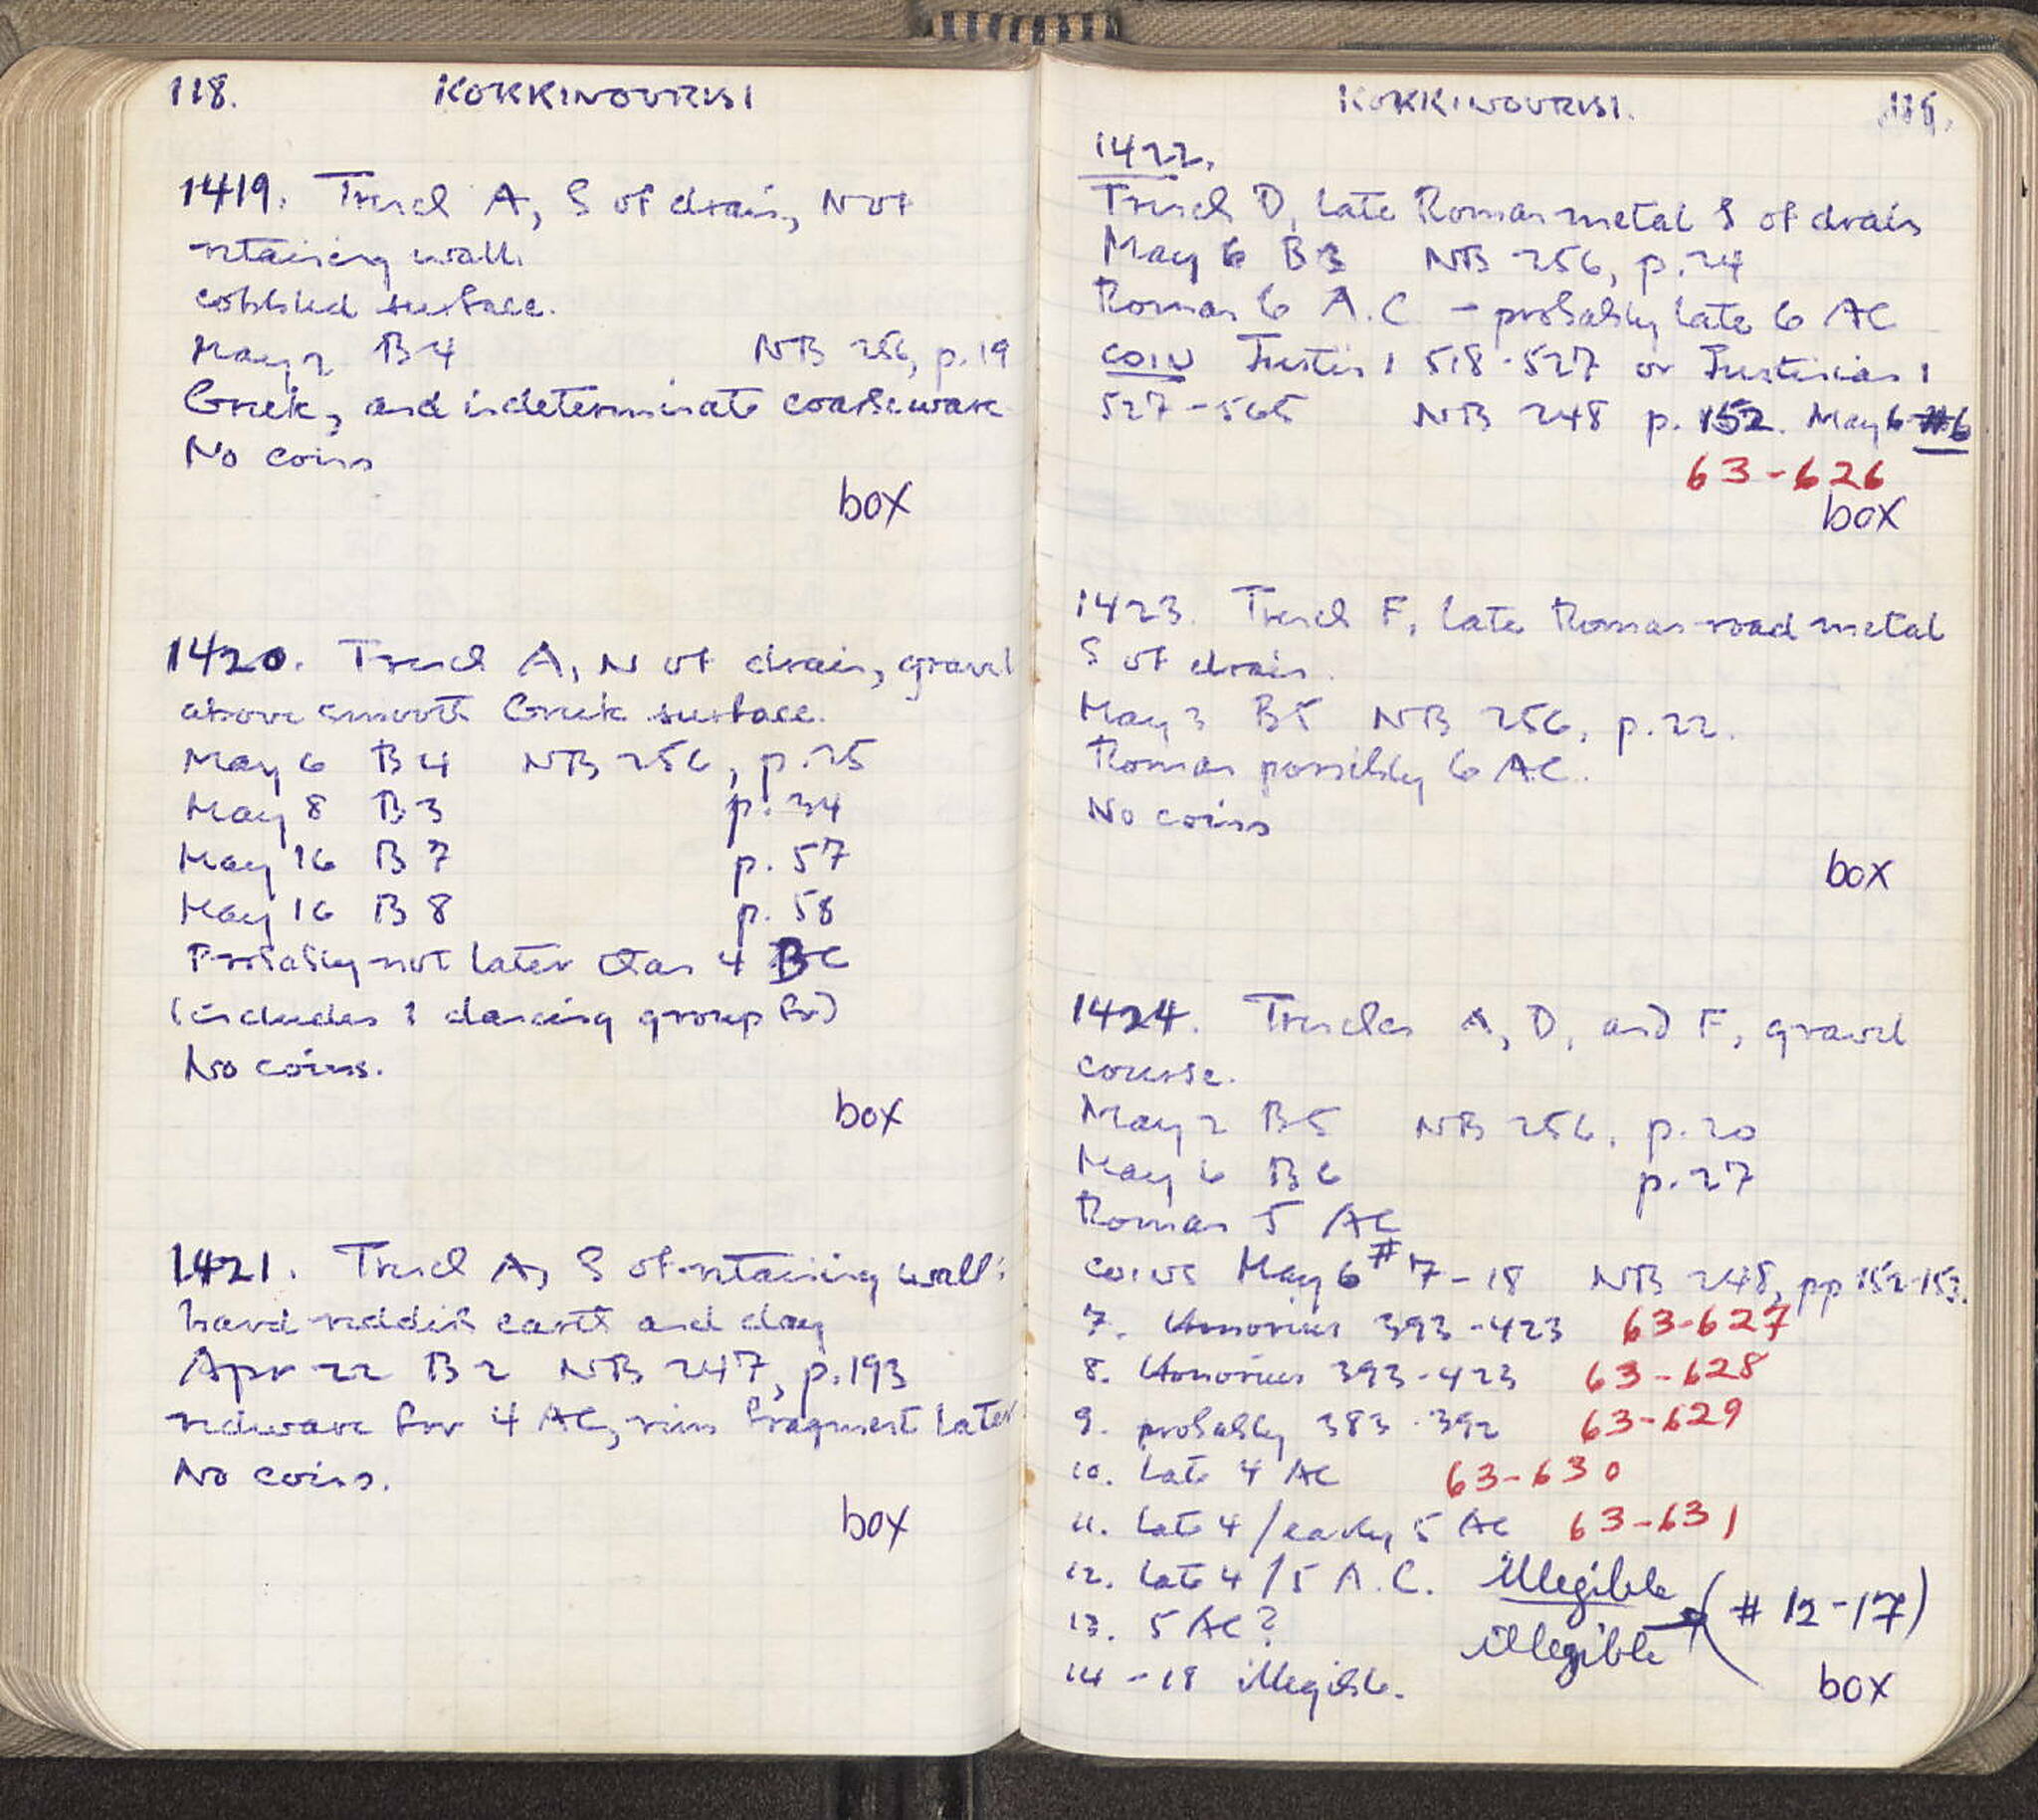 118. KOKKINOVRISI
1419. Trench A, S of drain, N of
retaining wall.
cobbled surface.
May 2 B4 NB 256, p.19
Greek, and indeterminate coarseware
No coins
box
1420. Trench A, N of drain, gravel
above smooth Greek surface.
May 6 B4 NB 256, p.25
May 8 B3 p.34
May 16 B7 p.57
May 16 B8 p.58
Probably not later than 4 BC
(includes 1 dancing group fr)
No coins.
box
1421. Trench A, S of retaining wall:
hard reddish earth and clay
Apr 22 B2 NB 247, p.193
redware fr 4 AC, rim fragment later
No coins.
box
KOKKINOVRISI. 119.
1422.
Trench D, late Roman metal S of drain
May 6 B3 NB 256, p.24
Roman 6 A.C – probably late 6 AC
COIN Justin 1 518-527 or Justinian 1
527-565 NB 248 p. 152. May 6 #6
63-626
box
1423. Trench F, late Roman road metal
S of drain.
May 3 B5 NB 256, p.22.
Roman possibly 6 AC.
No coins
box
1424. Trenches A, D, and F, gravel
course.
May 2 B5 NB 256, p.20
May 6 B6 p.27
Roman 5 AC
coins May 6 #7-18 NB 248, pp 152-153.
7. Honorius 393-423 63-627
8. Honorius 393-423 63-628
9. probably 383-392 63-629
10. late 4 AC 63-630
11. late 4/early 5 AC 63-631
12. late 4/5 A.C. illegible
13. 5 AC? illegible (#12-17)
14-18 illegible.
box